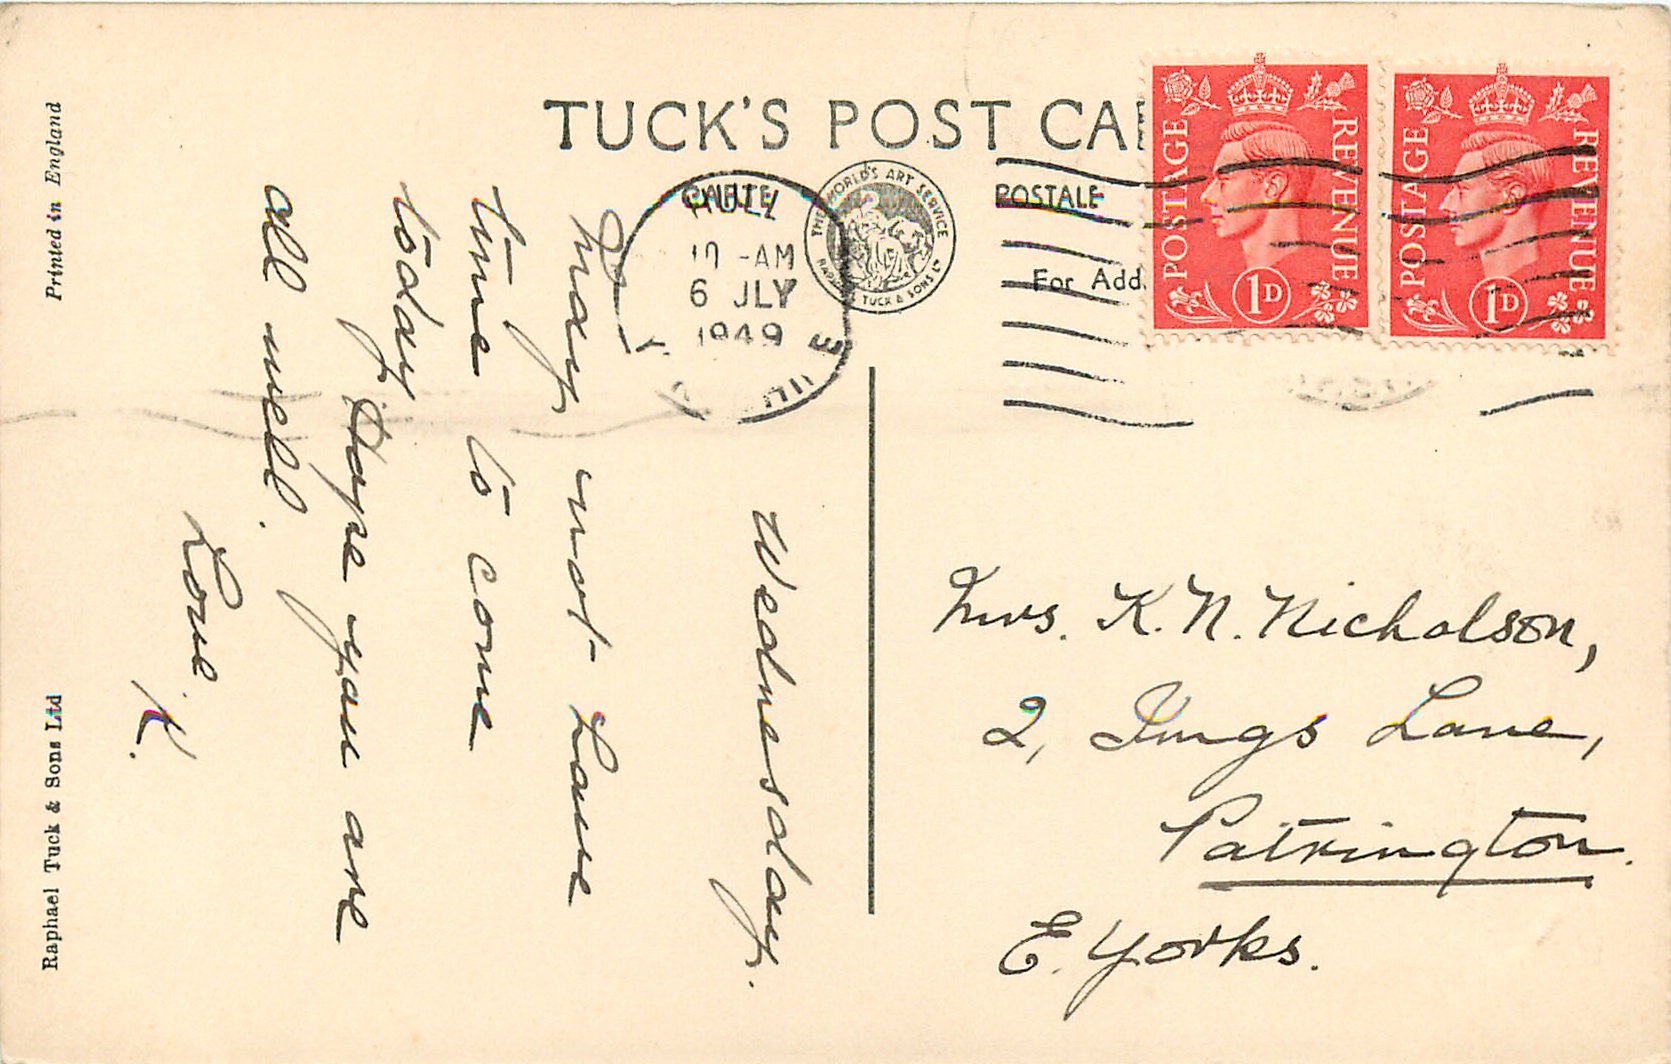 TUCK'S POST CA
CARTE POSTALE
THE WORLD'S ART SERVICE
RAPHAEL TUCK & SONS LTD
For Add
HULL
10 - AM
6 JLY
1949
POSTAGE REVENUE
1D
POSTAGE REVENUE
1D
Wednesday.
May not have
time to come
today. Hope you are
all well.
Love
K.
Mrs. K. N. Nicholson,
2, Ings Lane,
Patrington.
E. Yorks.
Printed in England
Raphael Tuck & Sons Ltd